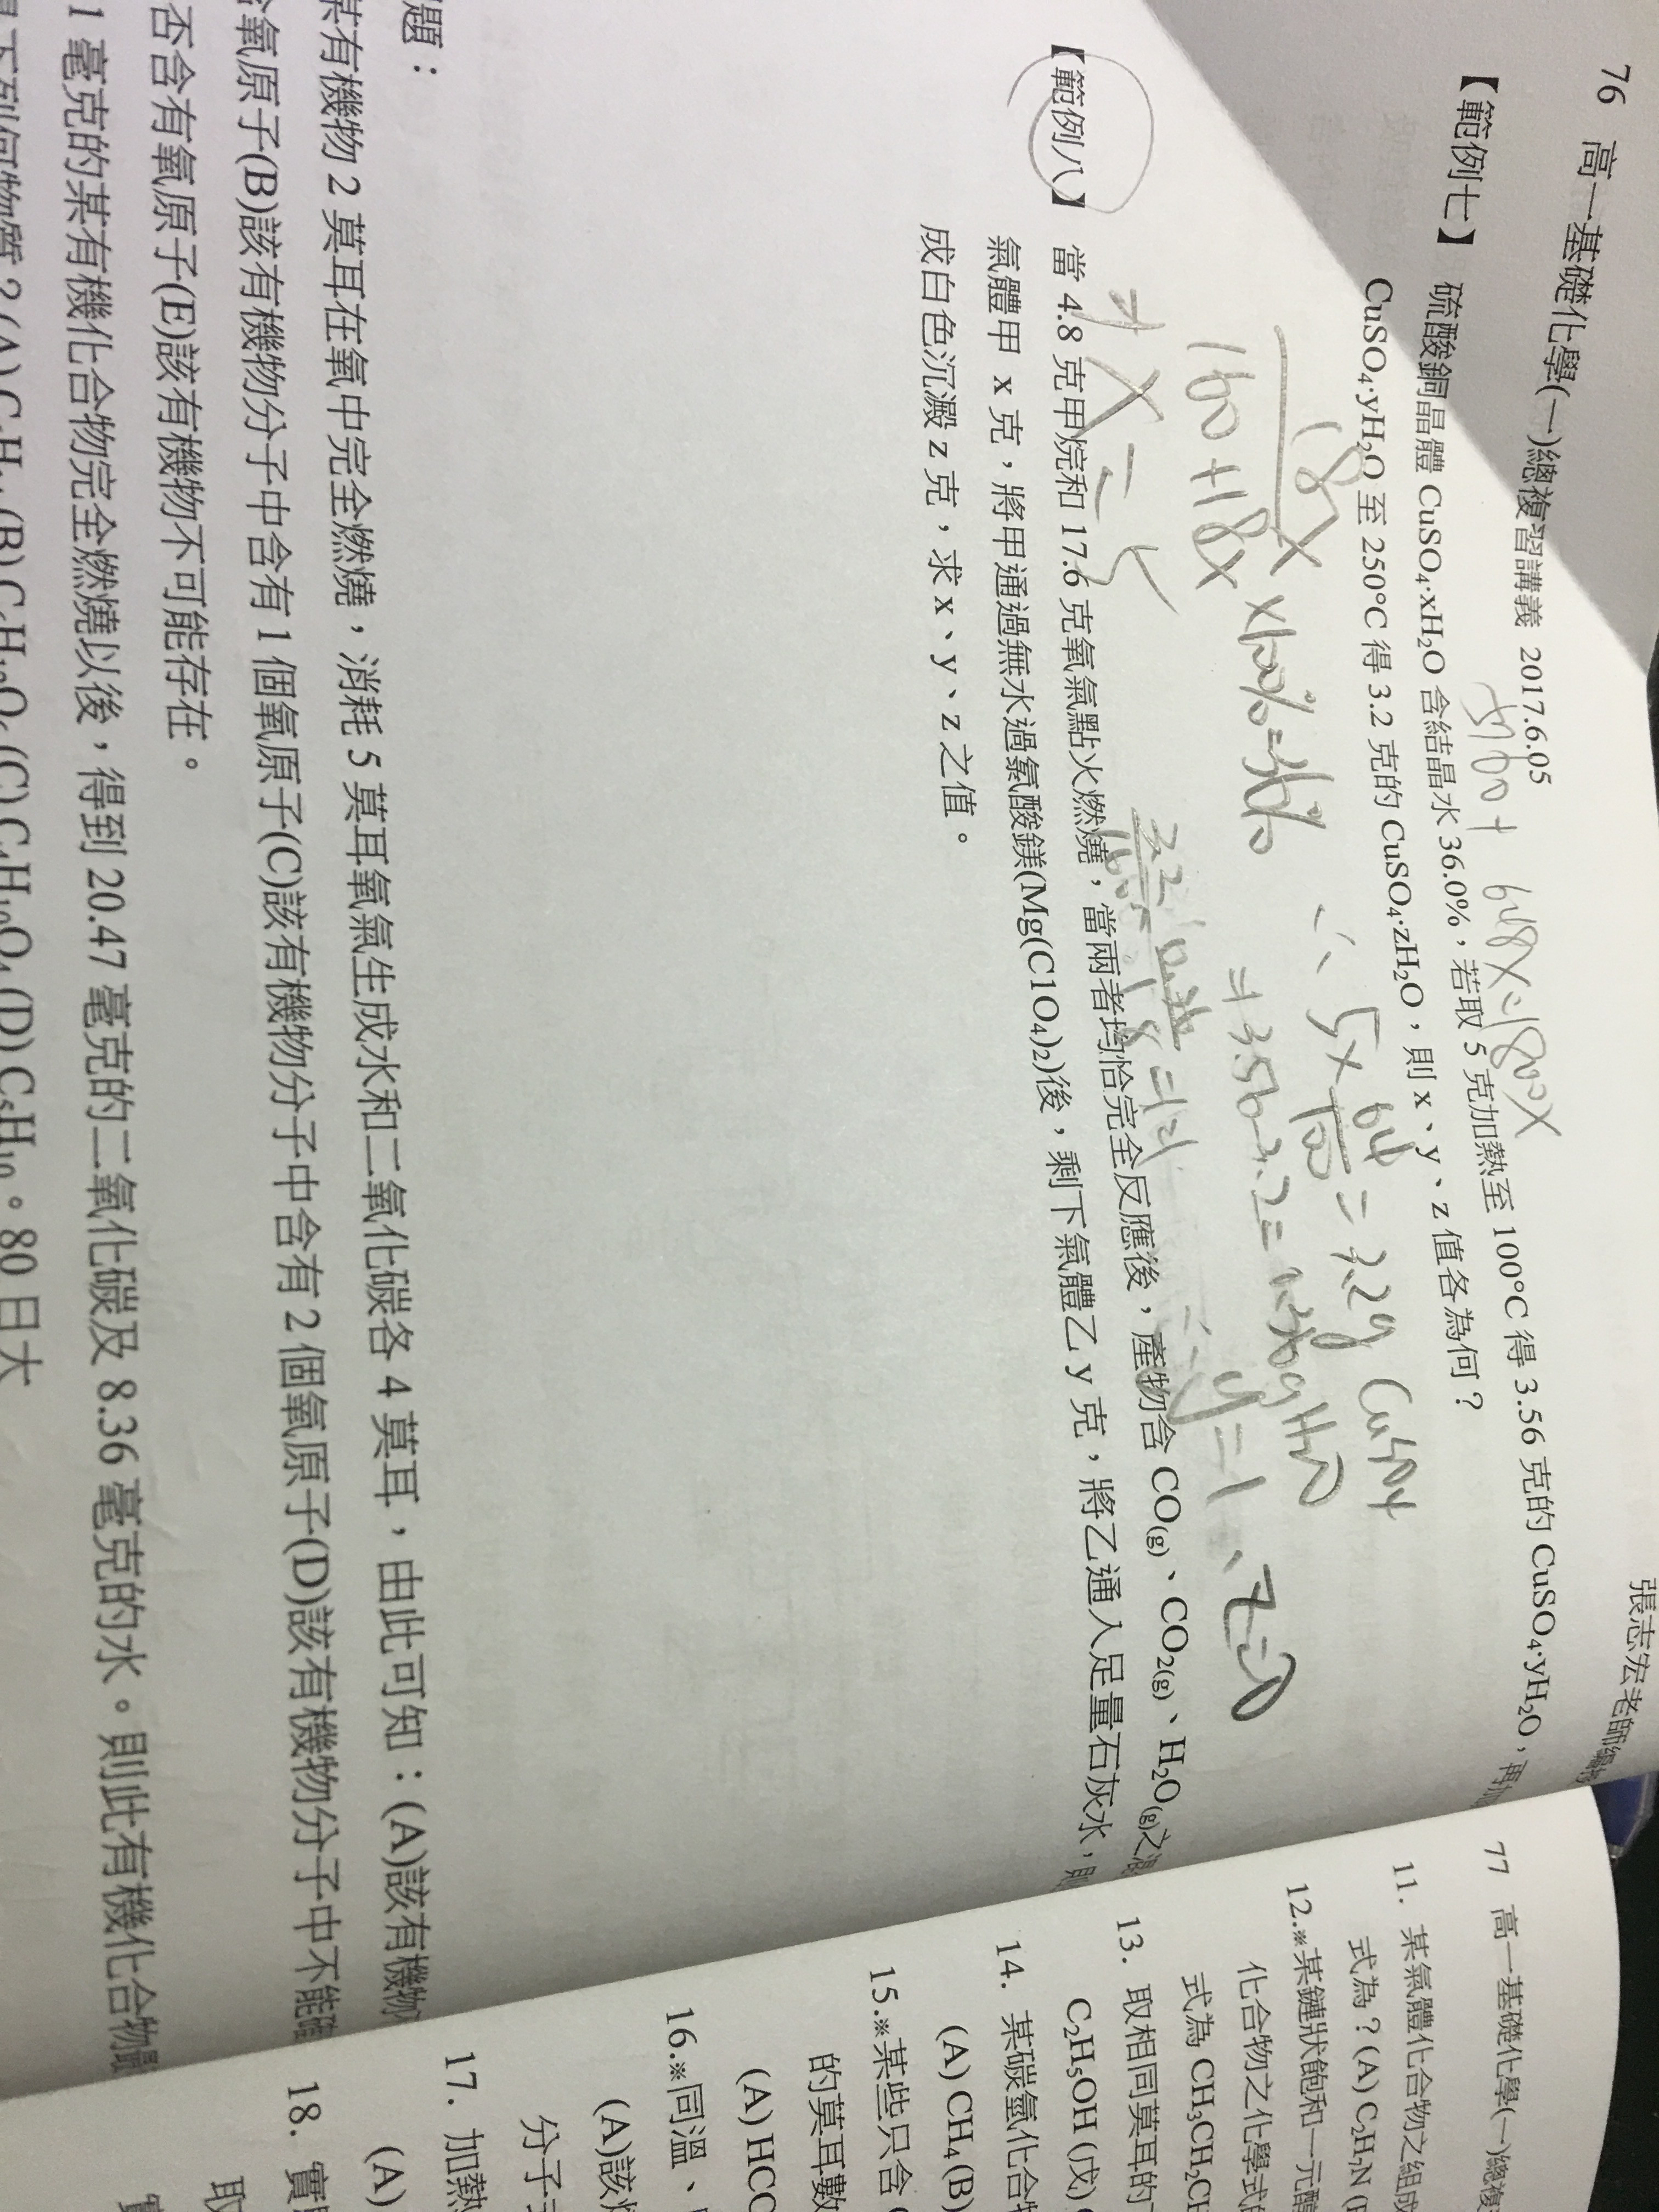 76 高一基礎化學(一)總複習講義 2017.6.05
張志宏老師編
【範例七】 硫酸銅晶體 CuSO₄·xH₂O 含結晶水 36.0%,若取 5 克加熱至 100°C 得 3.56 克的 CuSO₄·yH₂O,再
CuSO₄·yH₂O 至 250°C 得 3.2 克的 CuSO₄·zH₂O,則 x、y、z 值各為何?
18x
160+18x
x100%=36%
x=5
5x 64/100 = 3.2g CuSO4
3.56-3.2=0.36g H2O
y=1、z=0
【範例八】 當 4.8 克甲烷和 17.6 克氧氣點火燃燒,當兩者均恰完全反應後,產物含 CO(g)、CO₂(g)、H₂O(g)之
氣體甲 x 克,將甲通過無水過氯酸鎂(Mg(ClO₄)₂)後,剩下氣體乙 y 克,將乙通入足量石灰水,
成白色沉澱 z 克,求 x、y、z 之值。
題:
某有機物 2 莫耳在氧中完全燃燒,消耗 5 莫耳氧氣生成水和二氧化碳各 4 莫耳,由此可知:(A)該有機物
含氧原子(B)該有機物分子中含有 1 個氧原子(C)該有機物分子中含有 2 個氧原子(D)該有機物分子中不能
否含有氧原子(E)該有機物不可能存在。
1 毫克的某有機化合物完全燃燒以後,得到 20.47 毫克的二氧化碳及 8.36 毫克的水。則此有機化合物
下列何物質?(A)
80 日大
77 高一基礎化學(一)總複
11. 某氣體化合物之組成
式為?(A) C₂H₇N
12.※某鏈狀飽和一元醇
化合物之化學式
式為 CH₃CH₂
13. 取相同莫耳的
C₂H₅OH (戊)
14. 某碳氫化合
(A) CH₄ (B)
15.※某些只含
的莫耳數
(A) HCO
16.※同溫、
(A)該
分子
17. 加熱
(A)
18. 實
取